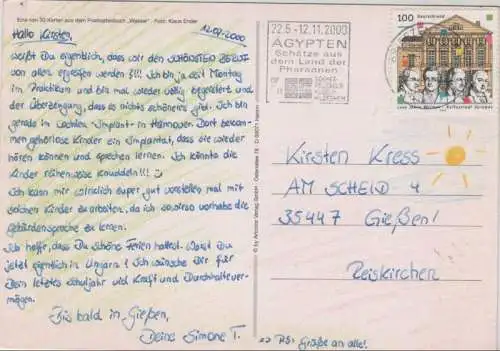 Eine von 30 Karten aus dem Postkartenbuch „Wasser“ Foto: Klaus Ender
Hallo Kirsten,
12.09.2000
weißt Du eigentlich, dass wir den SCHÖNSTEN BERUF
von allen ergreifen werden?!! Ich bin ja seit Montag
im Praktikum und bis mal wieder völlig begeistert und
der Überzeugung, dass es nichts schöneres gibt. Ich bin
gerade im Cochlea-Implant- in Hannover. Dort bekom-
men gehörlose Kinder ein Implantat, dass sie wieder
hören können und sprechen lernen. Ich könnte die
Kinder reihenweise knuddeln!!!
Ich kann mir wirklich super gut vorstellen mal mit
solchen Kinder zu arbeiten, da ich sowieso vorhabe die
Gebärdensprache zu lernen.
Ich hoffe, dass Du schöne Ferien hattest. Warst Du
jetzt eigentlich in Ungarn? Ich wünsche Dir für
Dein letztes Schuljahr viel Kraft und Durchhaltever-
mögen.
Bis bald in Gießen,
Deine Simone T.
22.5 - 12.11.2000
ÄGYPTEN
Schätze aus
dem Land der
Pharaonen
100
Deutschland
Kirsten Kress
AM SCHEID 4
35447 Gießen!
Reiskirchen
=> PS: Grüße an alle!